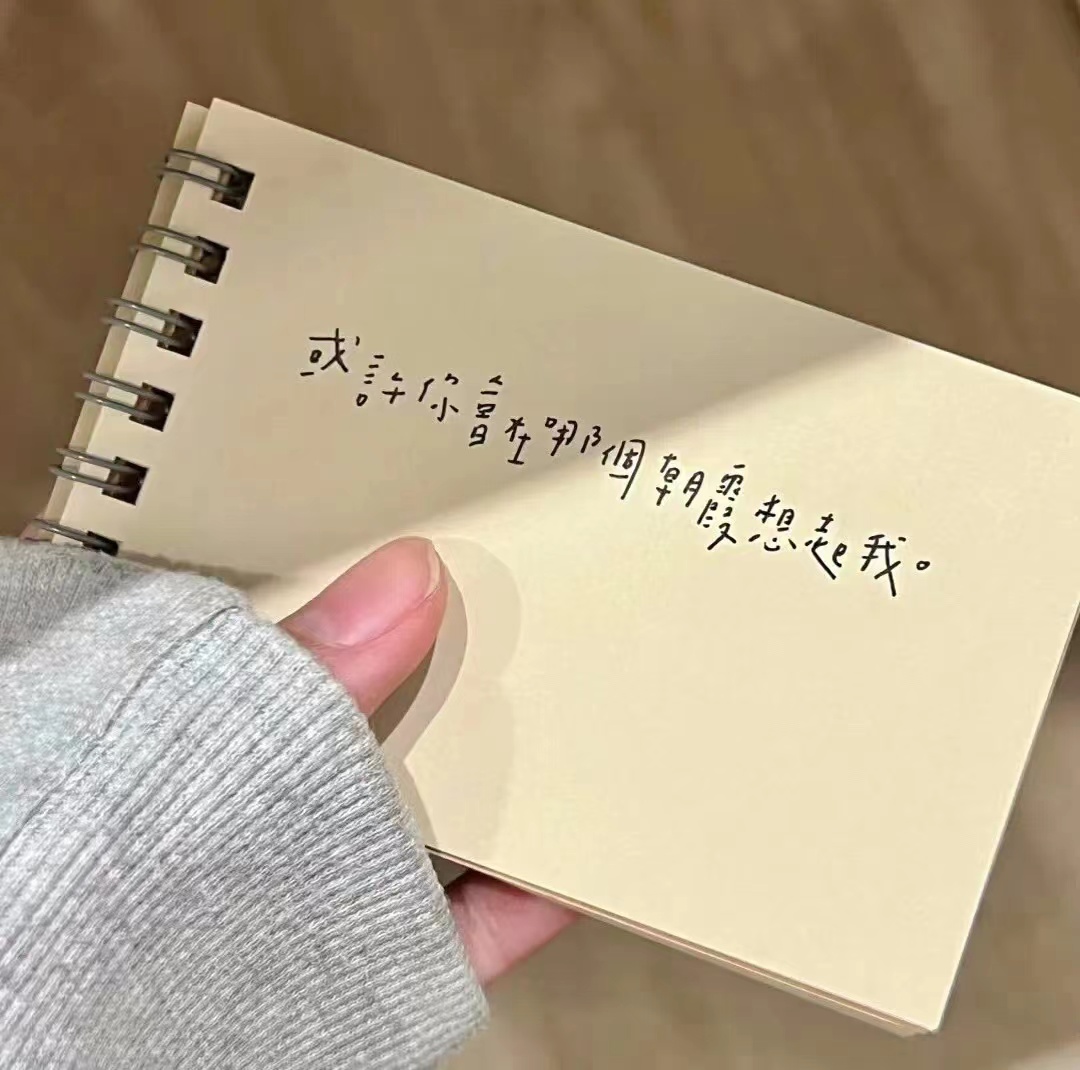 或許你會在哪個朝霞想起我。